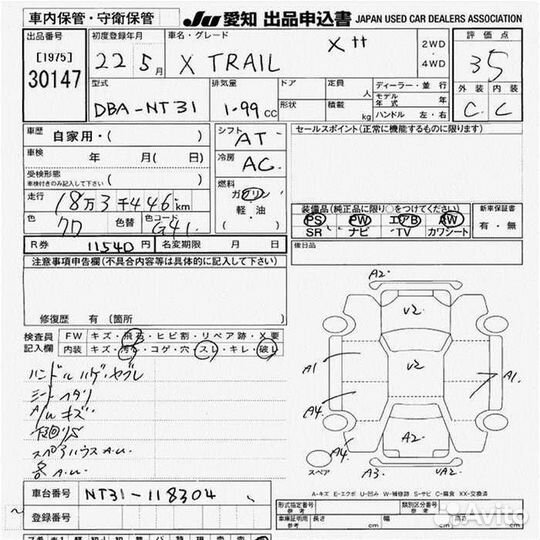 車内保管・守衛保管 JU 愛知 出品申込書 JAPAN USED CAR DEALERS ASSOCIATION
出品番号 初度登録年月 車名・グレード 評価点
[1975] 22年5月 X TRAIL 2WD・4WD
30147 3.5
型式 排気量 ドア 定員 人 ディーラー・並行
外装 内装
DBA-NT31 1.99cc 形状 積載 kg モデル年式 年
ハンドル 左・右 C C
車歴 自家用・( ) シフト AT セールスポイント(正常に機能するものに限ります)
車検 年 月( 日) 冷房 AC
受検形態 ( )
車検付きのみ記入して下さい 燃料
走行 18万3千446km ガソリン
軽・油
装備品(純正品に限り○をつけてください) 新車保証書
色 色替 色コード G41 ( ) PS PW エアB AW 有・無
SR ナビ TV カワシート
R券 11540円 名変期限 月 日 後日品
注意事項申告欄(不具合内容等は具体的に記入して下さい)
修復歴 有( 箇所 )
A2
V2
検査員記入欄 FW キズ・飛石・ヒビ割・リペア跡・X要
内装 キズ・汚れ・コゲ・穴・スレ・キレ・破レ
V2
A1 A1
ハンドルハゲ・ヤブレ
シートヘタリ
A/Wキズ
A4
A2
スペアハウスA.U.
A4
スペア A3 VA2
A-キズ E-エクボ U-凹み W-補修跡 S-サビ C-腐食 XX-交換済
車台番号 NT31-118304
登録番号
形式指定番号 参考 類別区分番号 参考
車庫証明用 参考 長さ cm 幅 cm 高さ cm
Avito